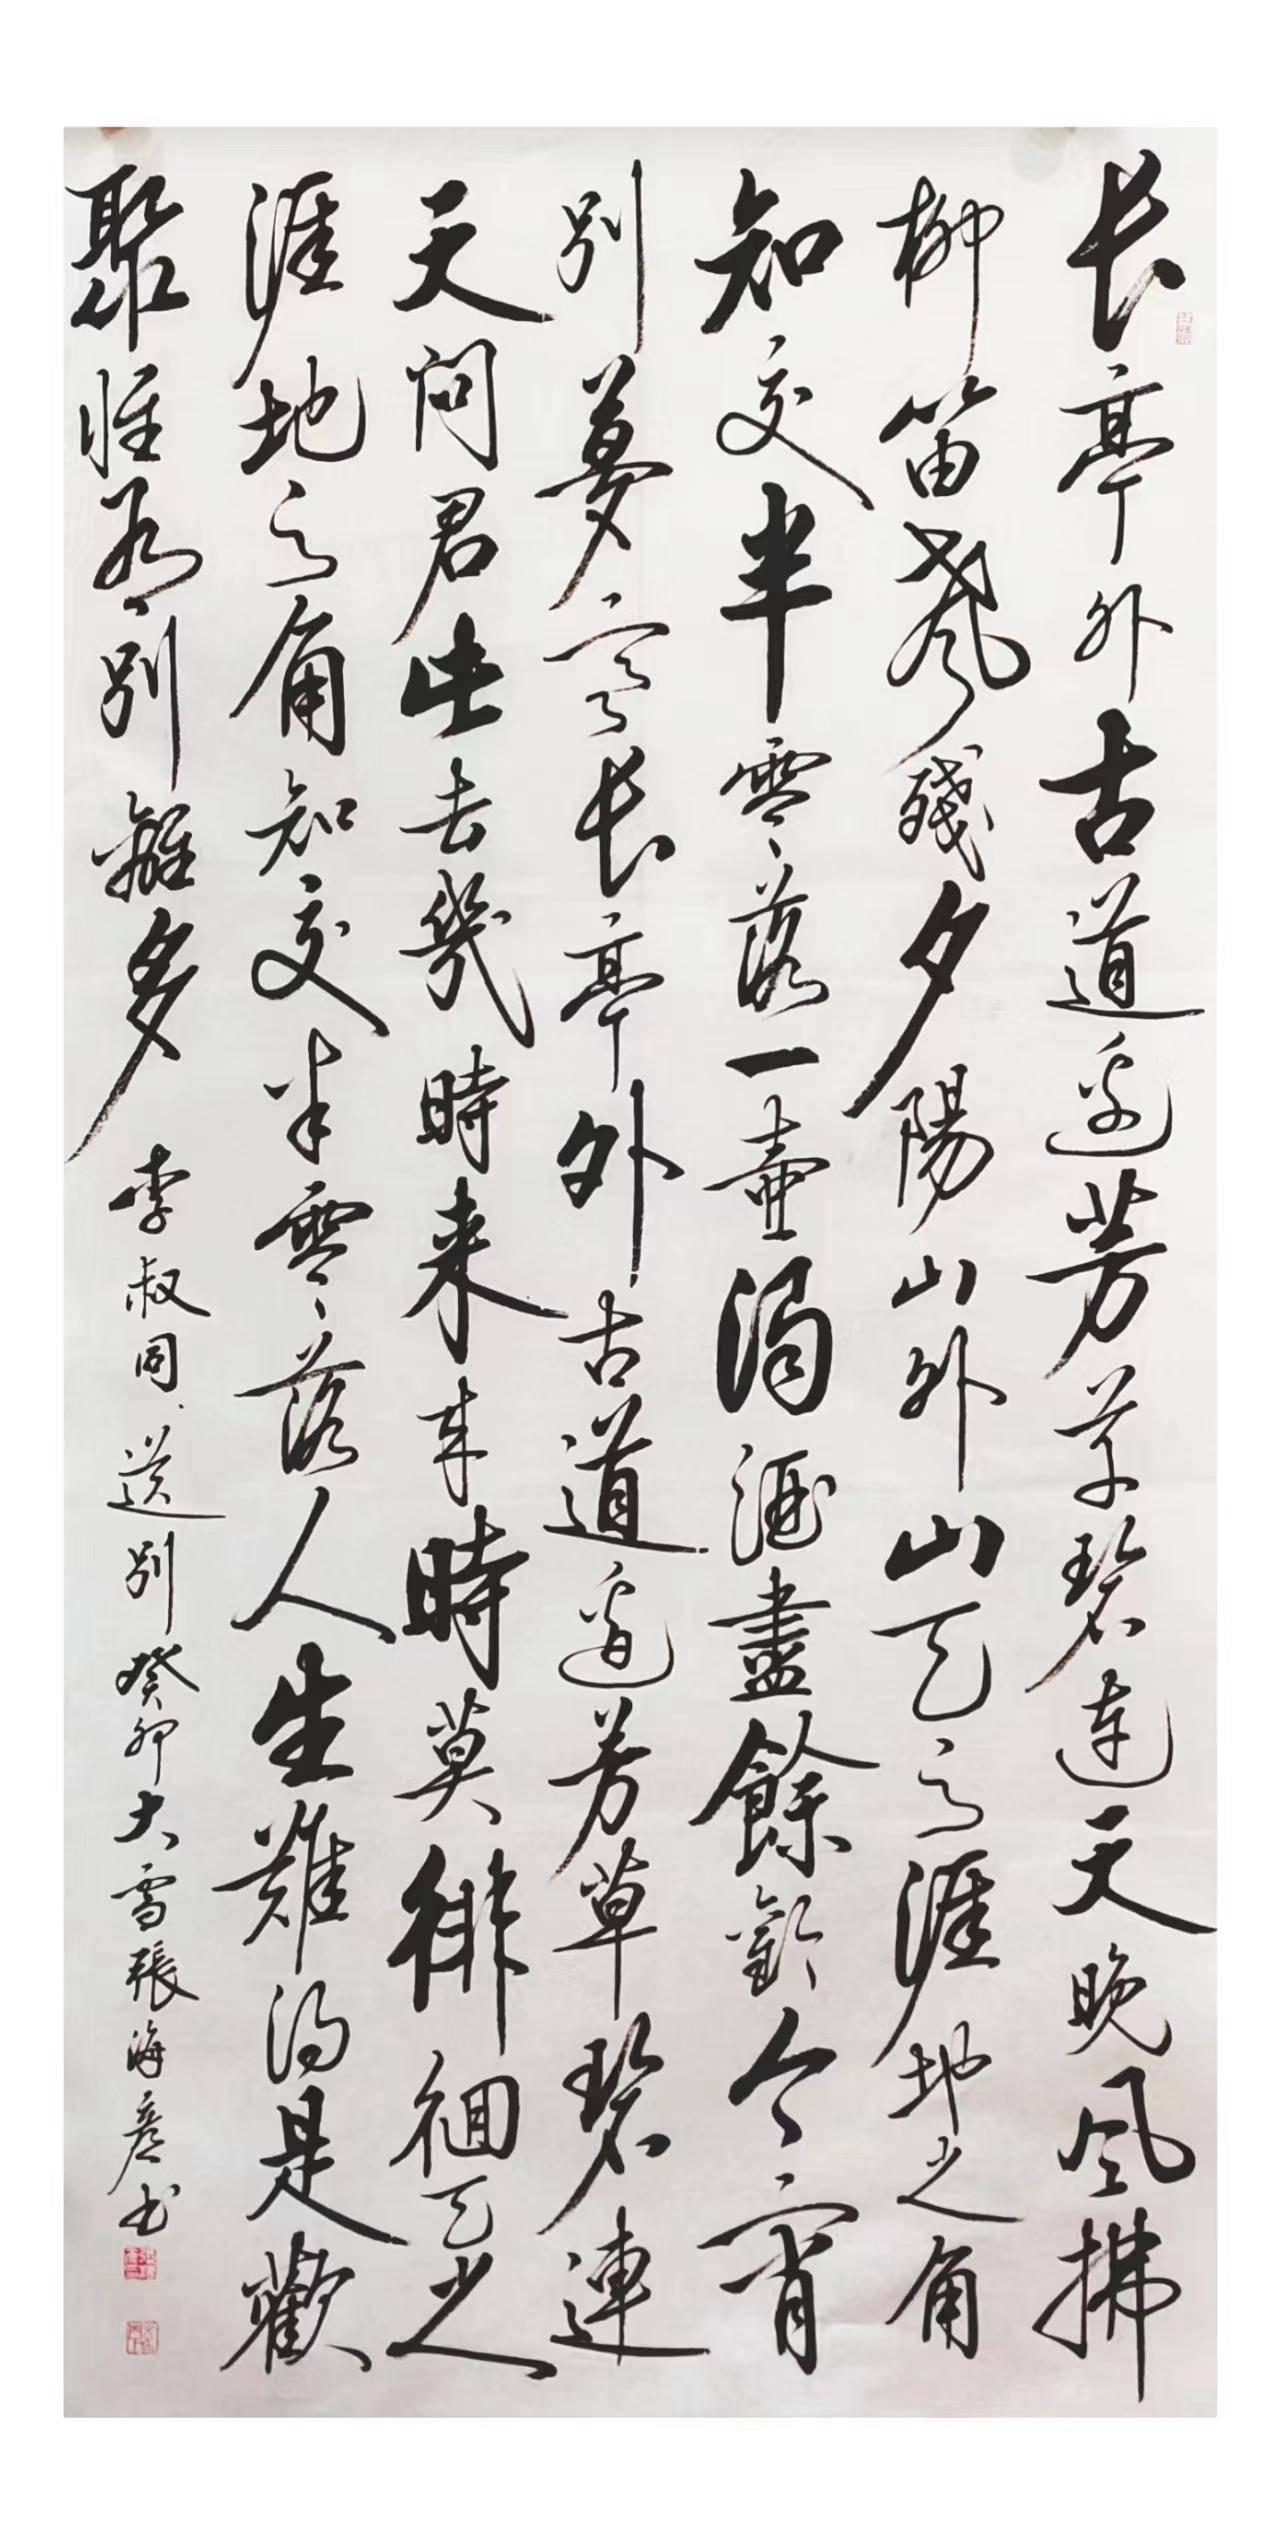 长亭外古道边芳草碧连天晚风拂
柳笛声残夕陽山外山天之涯地之角
知交半零落一壶濁酒盡餘歡今宵
别夢寒长亭外古道边芳草碧連
天问君此去幾時来来時莫徘徊天之
涯地之角知交半零落人生難得是歡
聚惟有别離多
李叔同送别癸卯大雪張海彦书